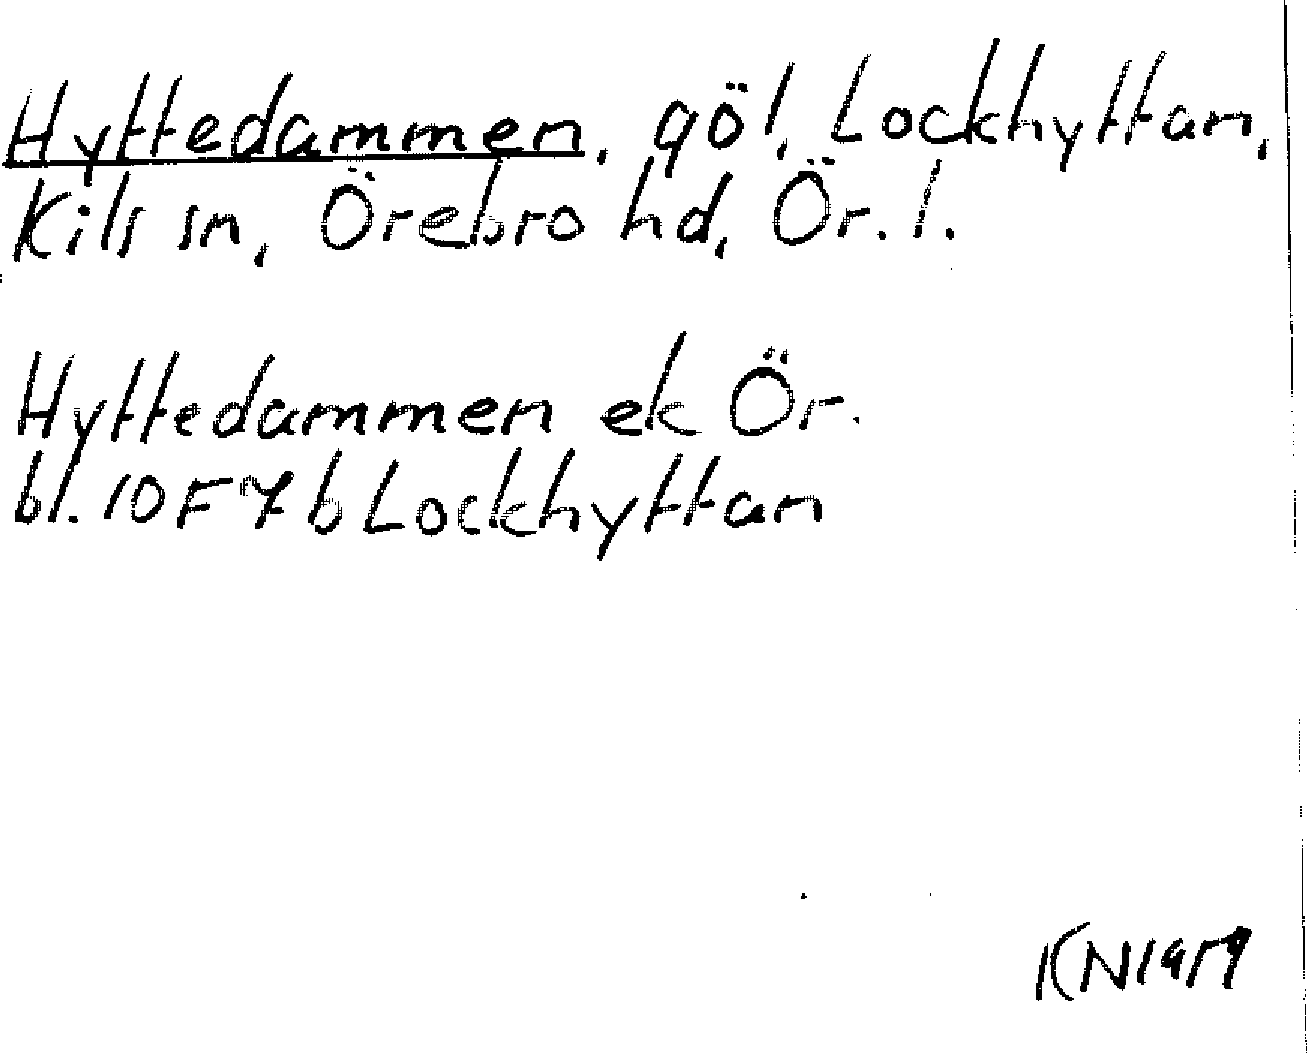 Hyttedammen, göl, Lockhyttan,
Kils sn, Örebro hd, Ör. l.
Hyttedammen ek Ör.
bl. 10F7b Lockhyttan
KN1959